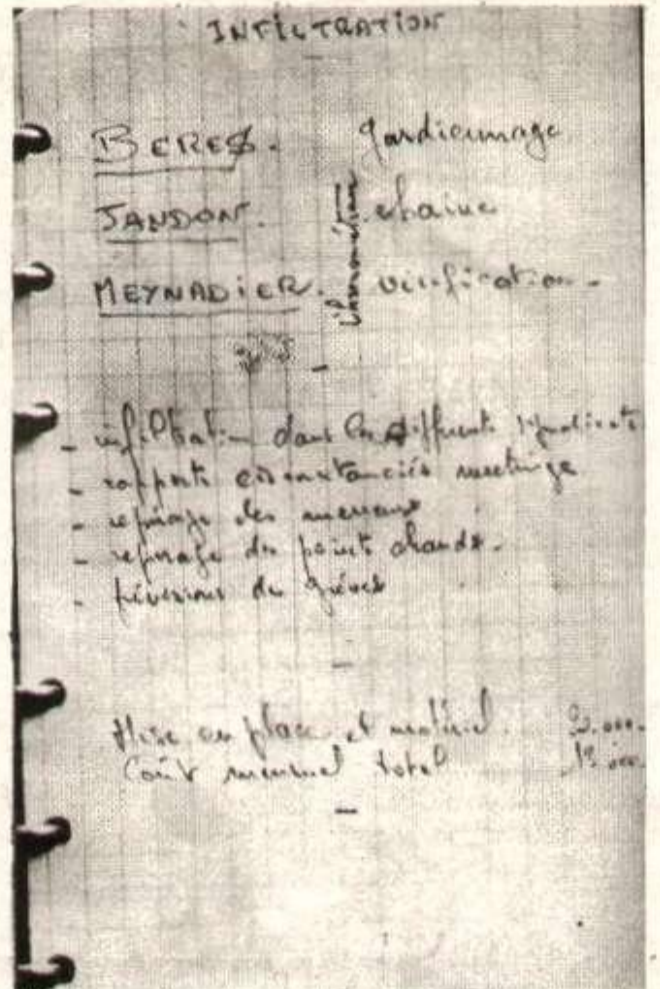 INFILTRATION
BERES. gardiennage
JANDON. chaine
MEYNADIER. vérification.
- infiltration dans les différents syndicats
- rapports circonstanciés meetings
- repérage des meneurs
- repérage des points chauds.
- prévisions de grèves
Mise en place et matériel
Coût mensuel total